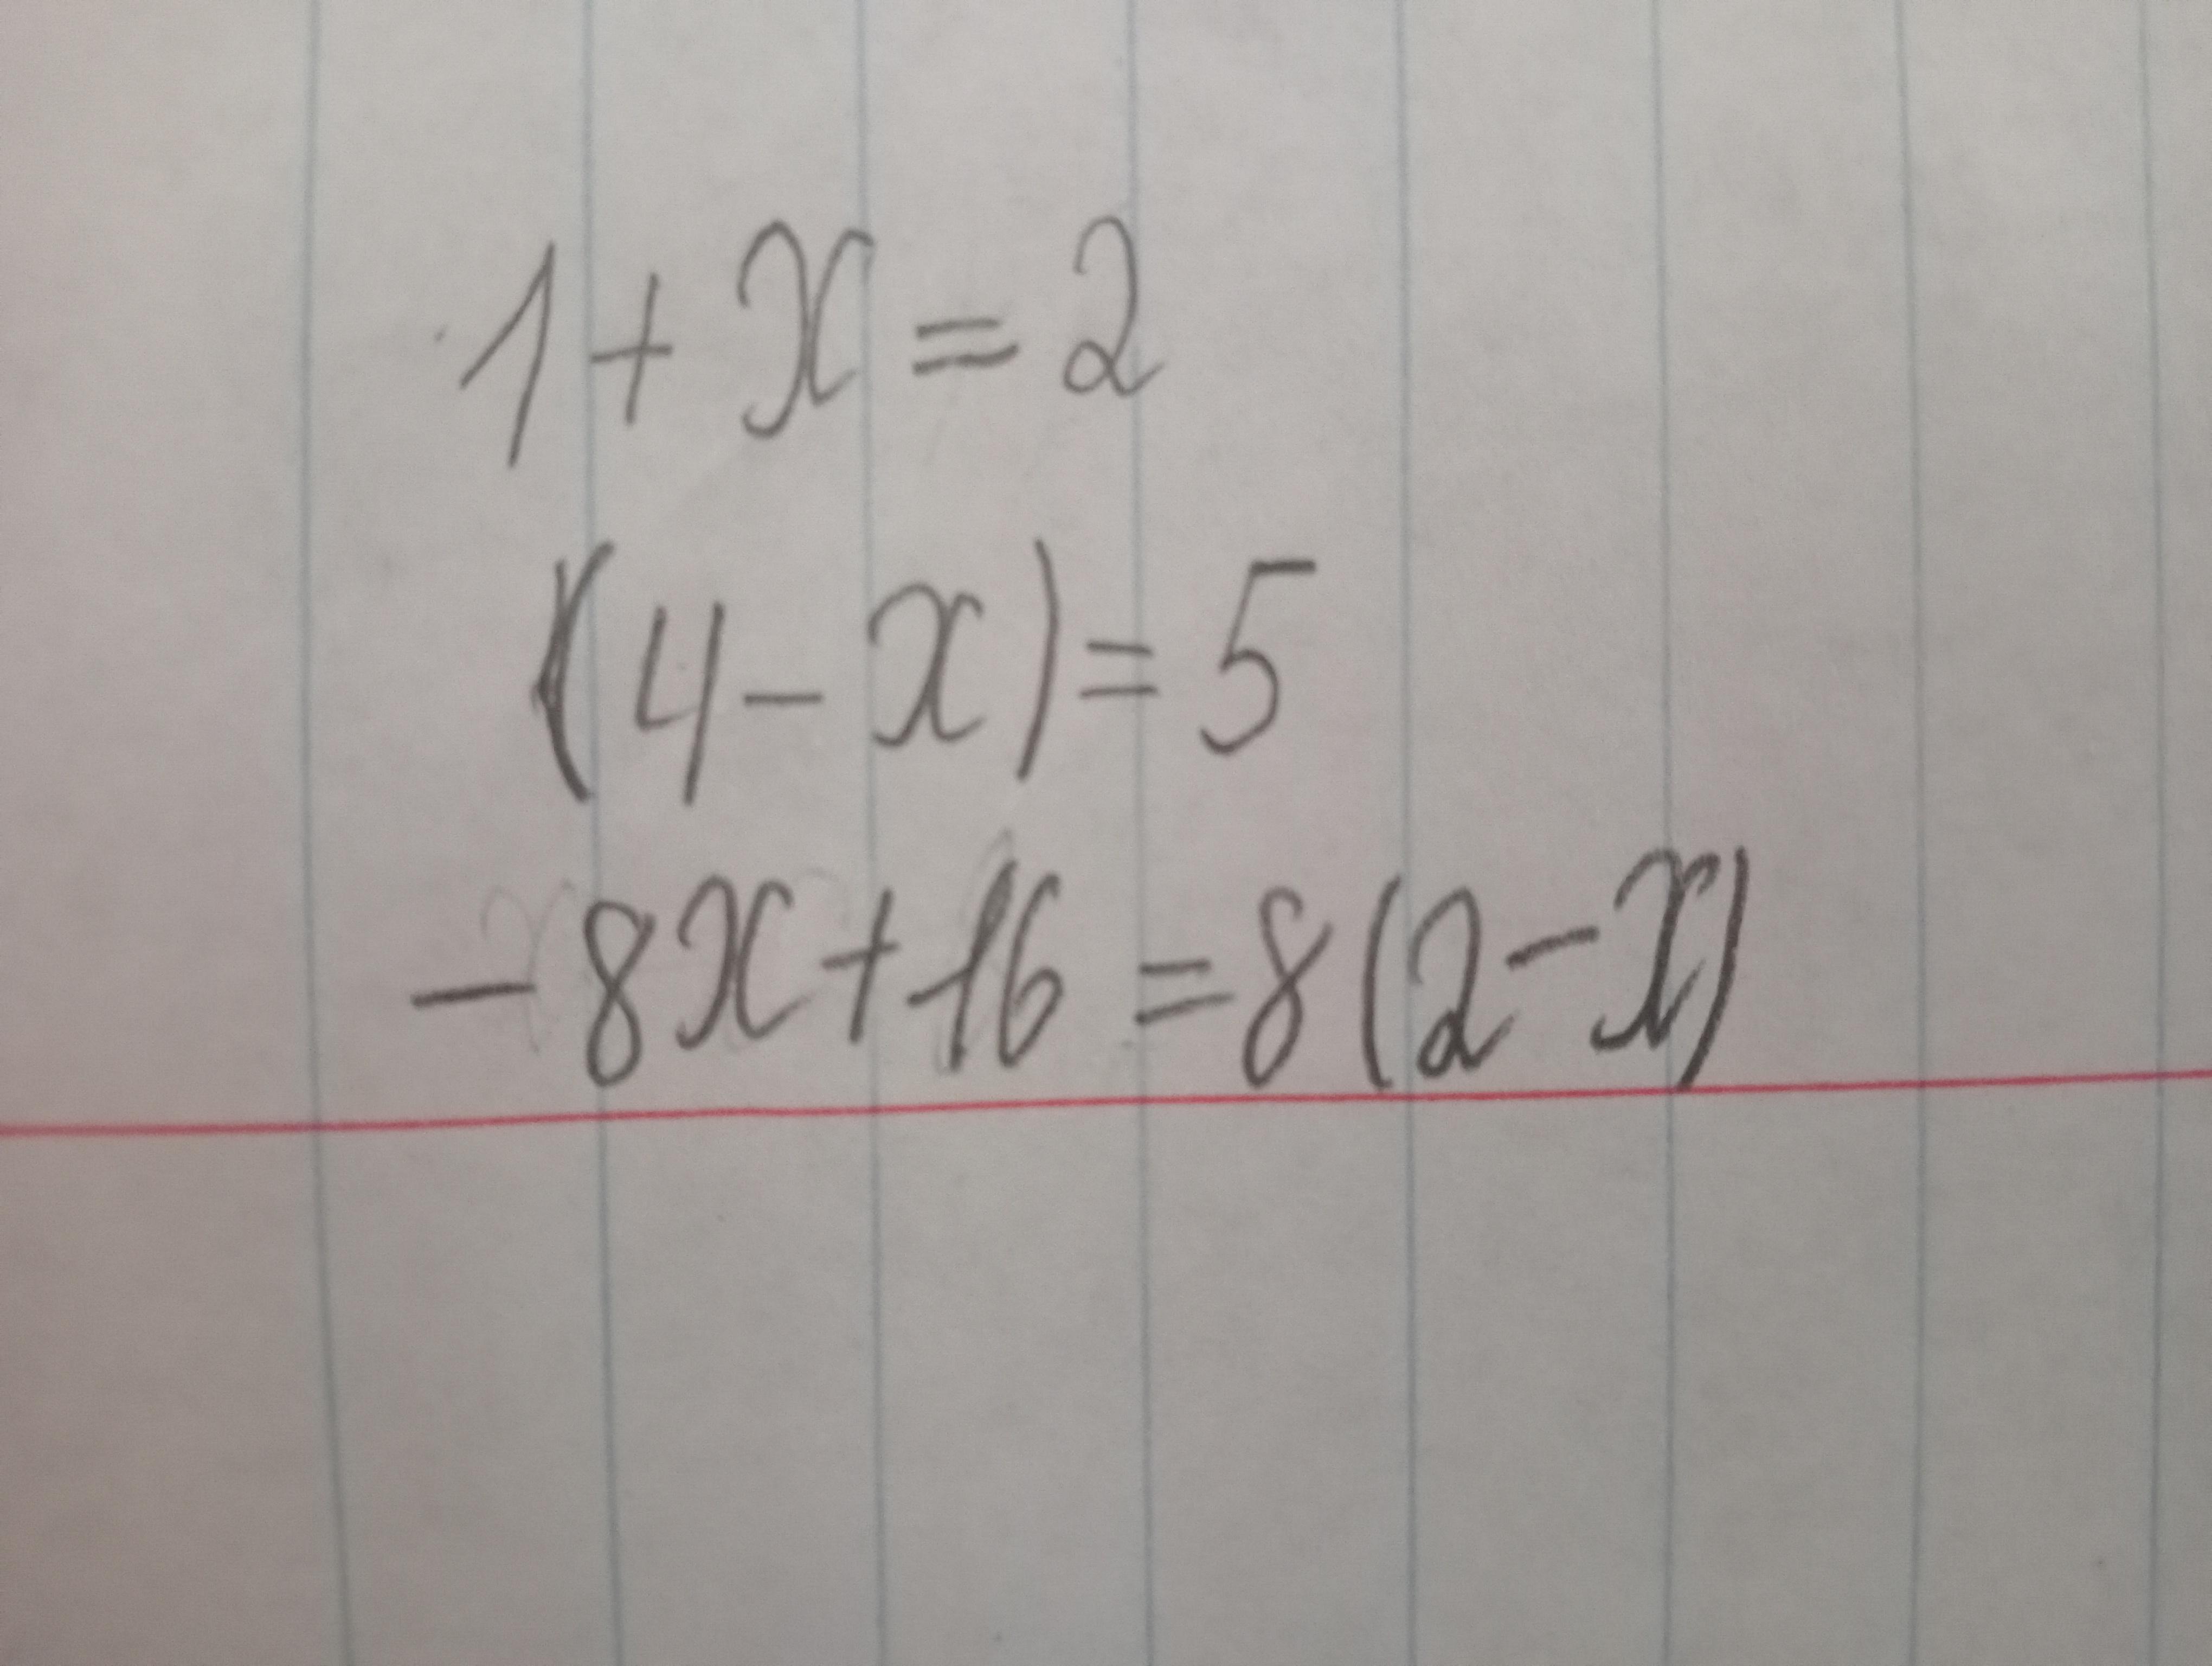 1+x=2
(4-x)=5
-8x+16=8(2-x)